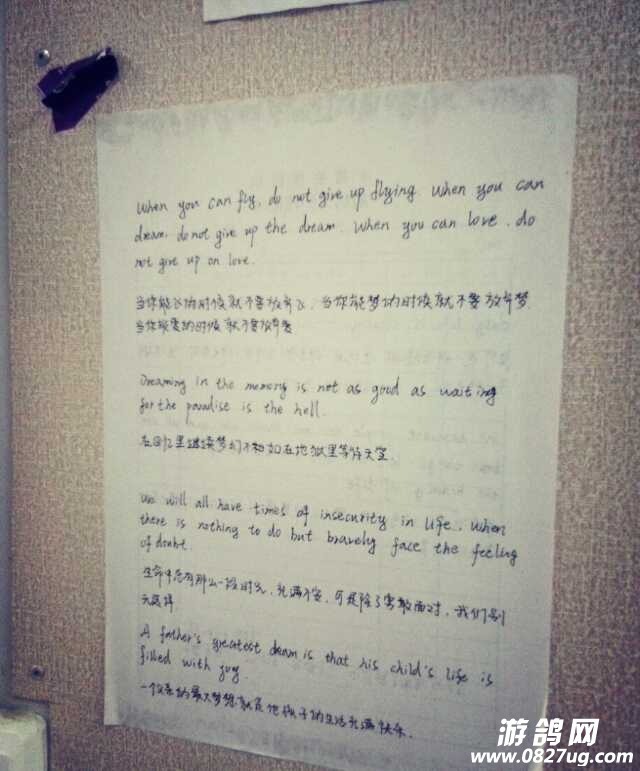 When you can fly, do not give up flying when you can
dream, do not give up the dream. When you can love, do
not give up on love.
当你能飞的时候就不要放弃飞, 当你能梦的时候就不要放弃梦
当你能爱的时候就不要放弃爱
Dreaming in the memory is not as good as waiting
for the paradise is the hell.
在回忆里继续梦幻不如在地狱里等待天堂.
We will all have times of insecurity in life, when
there is nothing to do but bravely face the feeling
of doubt.
生命中总有那么一段时光, 充满不安, 可是除了勇敢面对, 我们别
无选择.
A father's greatest dream is that his child's life is
filled with
一个父亲的最大梦想就是他孩子的生活充满快乐.
游鸽网
www.0827ug.com